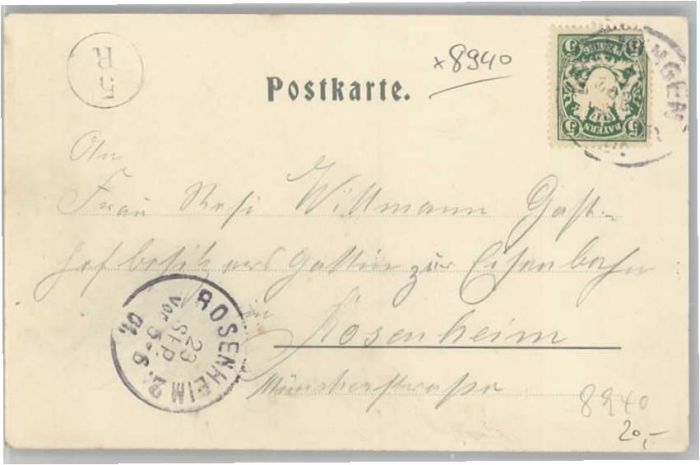 5
R
x8940
Postkarte.
BAYERN
5 5
5 5
NGEN
An
Frau Resi Wittmann Gast-
hofbesitzersgattin zur Eisenbahn
in
Rosenheim
Münchnerstraße
ROSENHEIM 2.
23
SEP.
Vor. 5-6
01.
8940
20,-